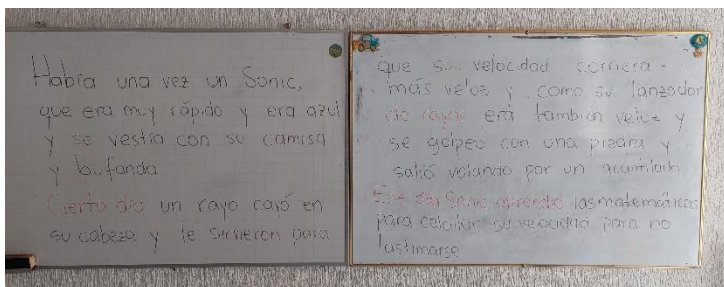 Había una vez un Sonic,
que era muy rápido y era azul
y se vestía con su camisa
y bufanda
Cierto día un rayo cayó en
su cabeza y le sirvieron para
que su velocidad corriera
más veloz y como su lanzador
de rayos era tambien veloz y
se golpeo con una piedra y
salió volando por un acantilado
Ese día Sonic aprendió las matemáticas
para calcular su velocidad para no
lastimarse